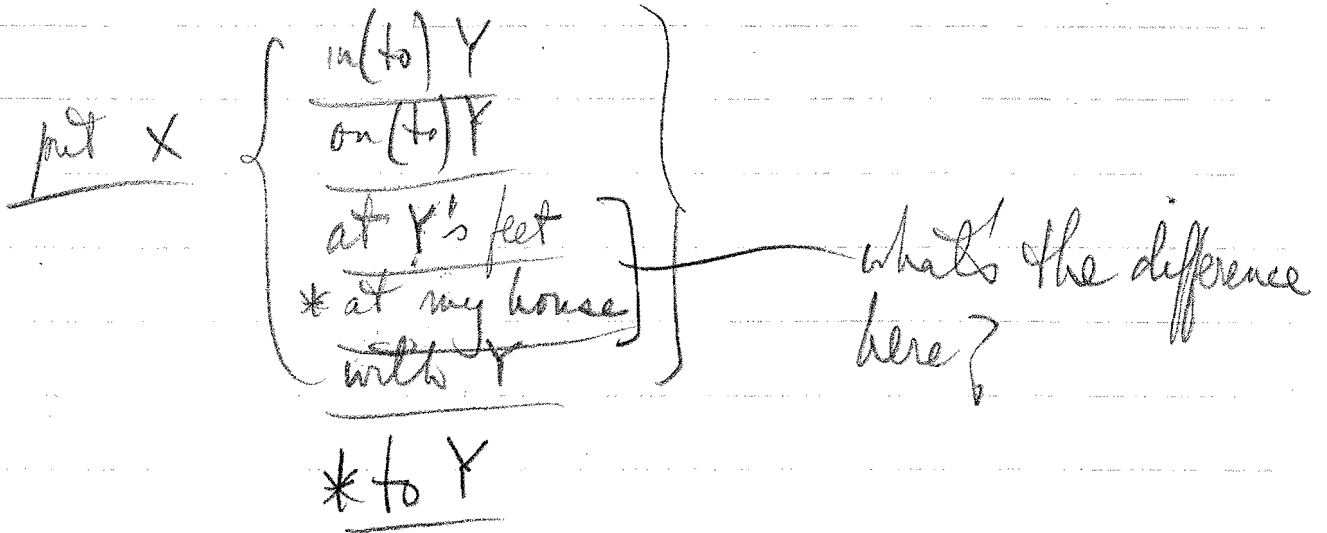 put X
in(to) Y
on(to) Y
at Y's feet
* at my house
with Y
* to Y
what's the difference
here?